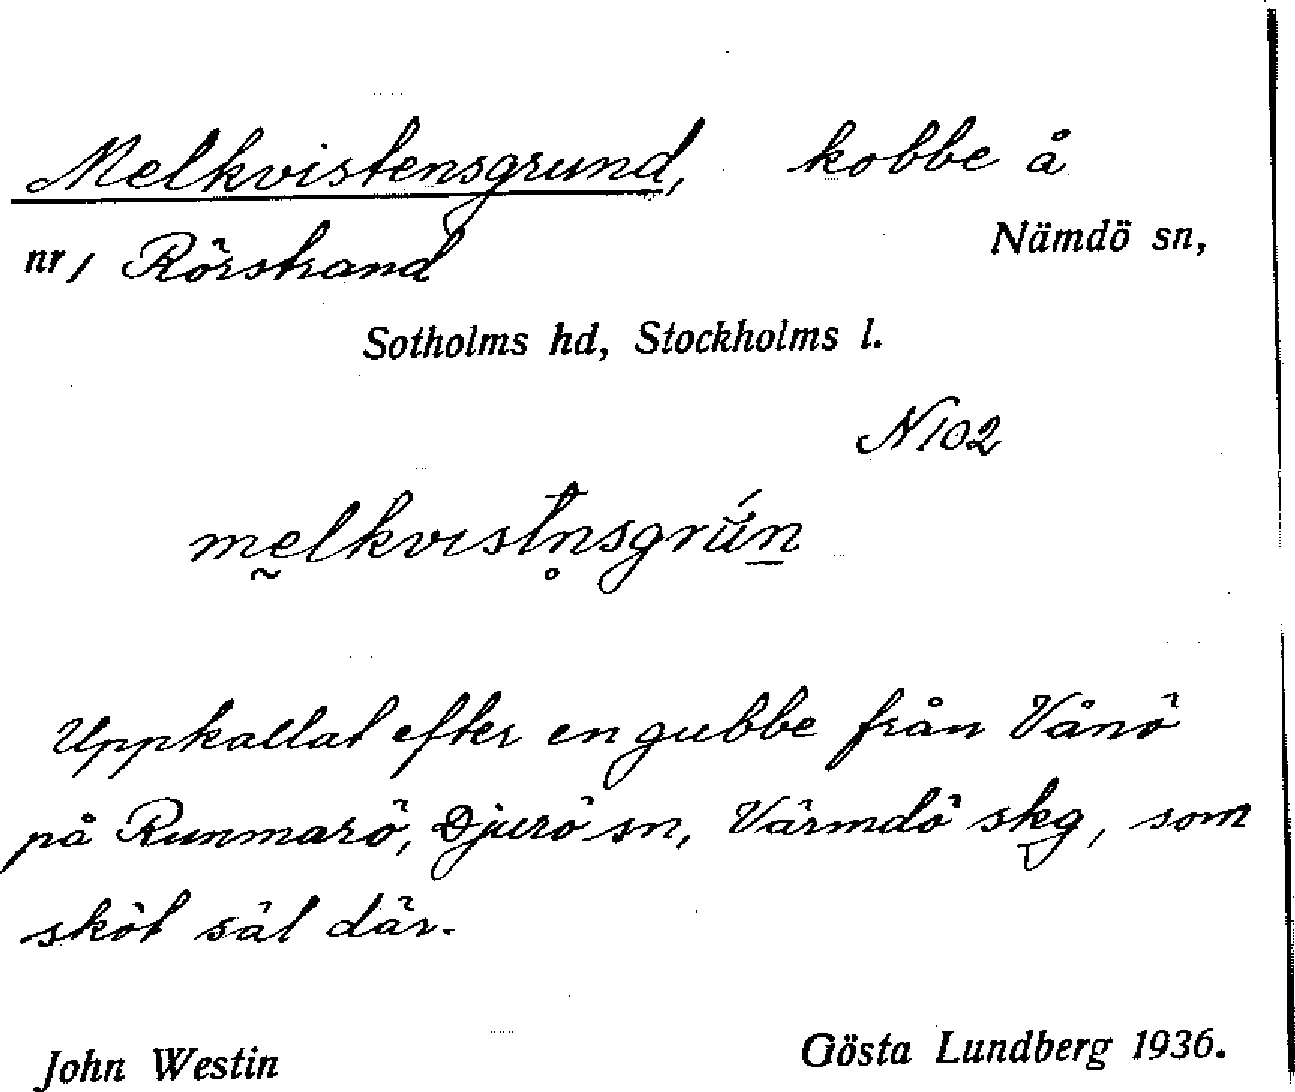 Melkvistensgrund, kobbe å
nr 1 Rörstrand Nämdö sn,
Sotholms hd, Stockholms l.
N 102
melkvistn̥sgrún
Uppkallat efter en gubbe från Vånö
på Runmarö, Djurö sn, Värmdö skg, som
sköt säl där.
John Westin Gösta Lundberg 1936.